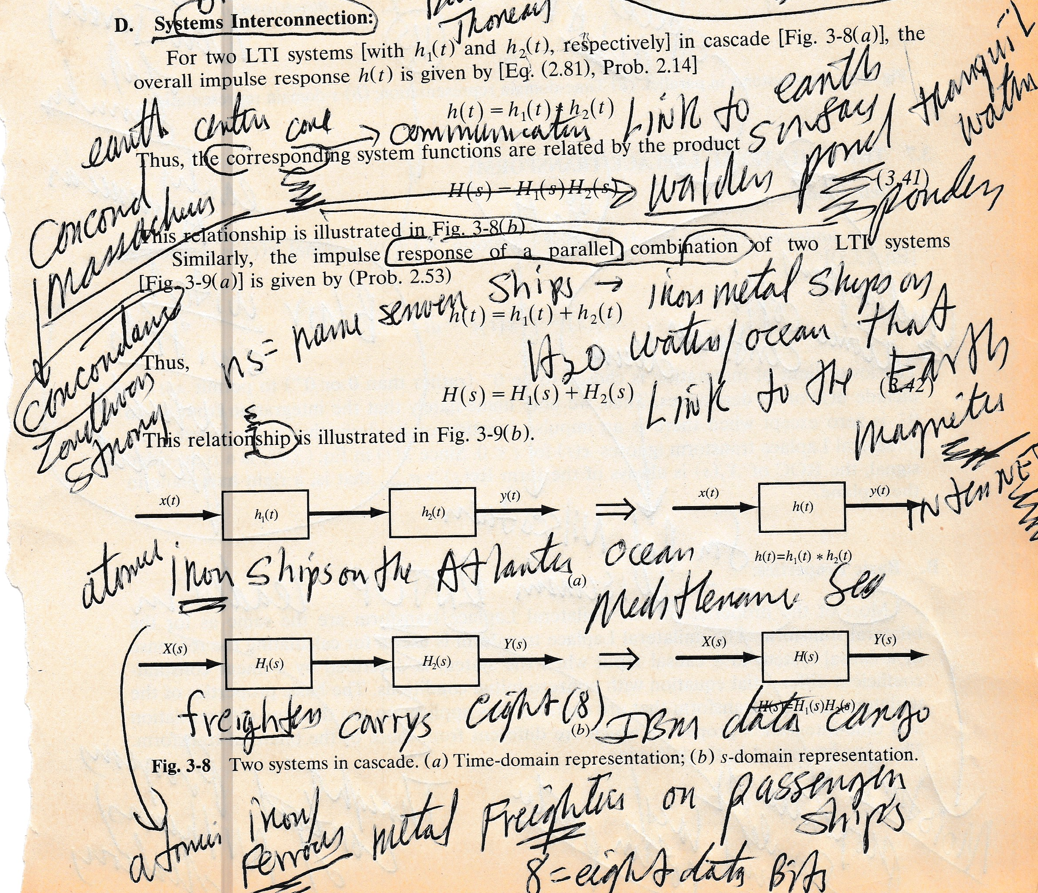 Thoreau
D. Systems Interconnection:
For two LTI systems [with h₁(t) and h₂(t), respectively] in cascade [Fig. 3-8(a)], the
overall impulse response h(t) is given by [Eq. (2.81), Prob. 2.14]
h(t) = h₁(t) * h₂(t)
earth center core → communicates Link to earth sensors tranquil water
Thus, the corresponding system functions are related by the product
H(s) = H₁(s)H₂(s) (3.41)
walden pond
ponders
Concord
Massachusetts
This relationship is illustrated in Fig. 3-8(b).
Similarly, the impulse response of a parallel combination of two LTI systems
[Fig. 3-9(a)] is given by (Prob. 2.53)
ns = name server ships → iron metal ships on
h(t) = h₁(t) + h₂(t)
H2O water/ocean that
Concordance
Thus,
H(s) = H₁(s) + H₂(s) (3.42)
Link to the Earth
magnetic
INterNET
strong
This relationship is illustrated in Fig. 3-9(b).
x(t) h₁(t) h₂(t) y(t) ⇒ x(t) h(t) y(t)
h(t)=h₁(t) * h₂(t)
atomic iron ships on the Atlantic ocean
(a)
Mediterranean Sea
X(s) H₁(s) H₂(s) Y(s) ⇒ X(s) H(s) Y(s)
H(s)=H₁(s)H₂(s)
freighter carrys eight (8) IBM data cargo
(b)
Fig. 3-8 Two systems in cascade. (a) Time-domain representation; (b) s-domain representation.
atomic iron/
ferrous metal Freighters on passenger
ships
8 = eight data Bits